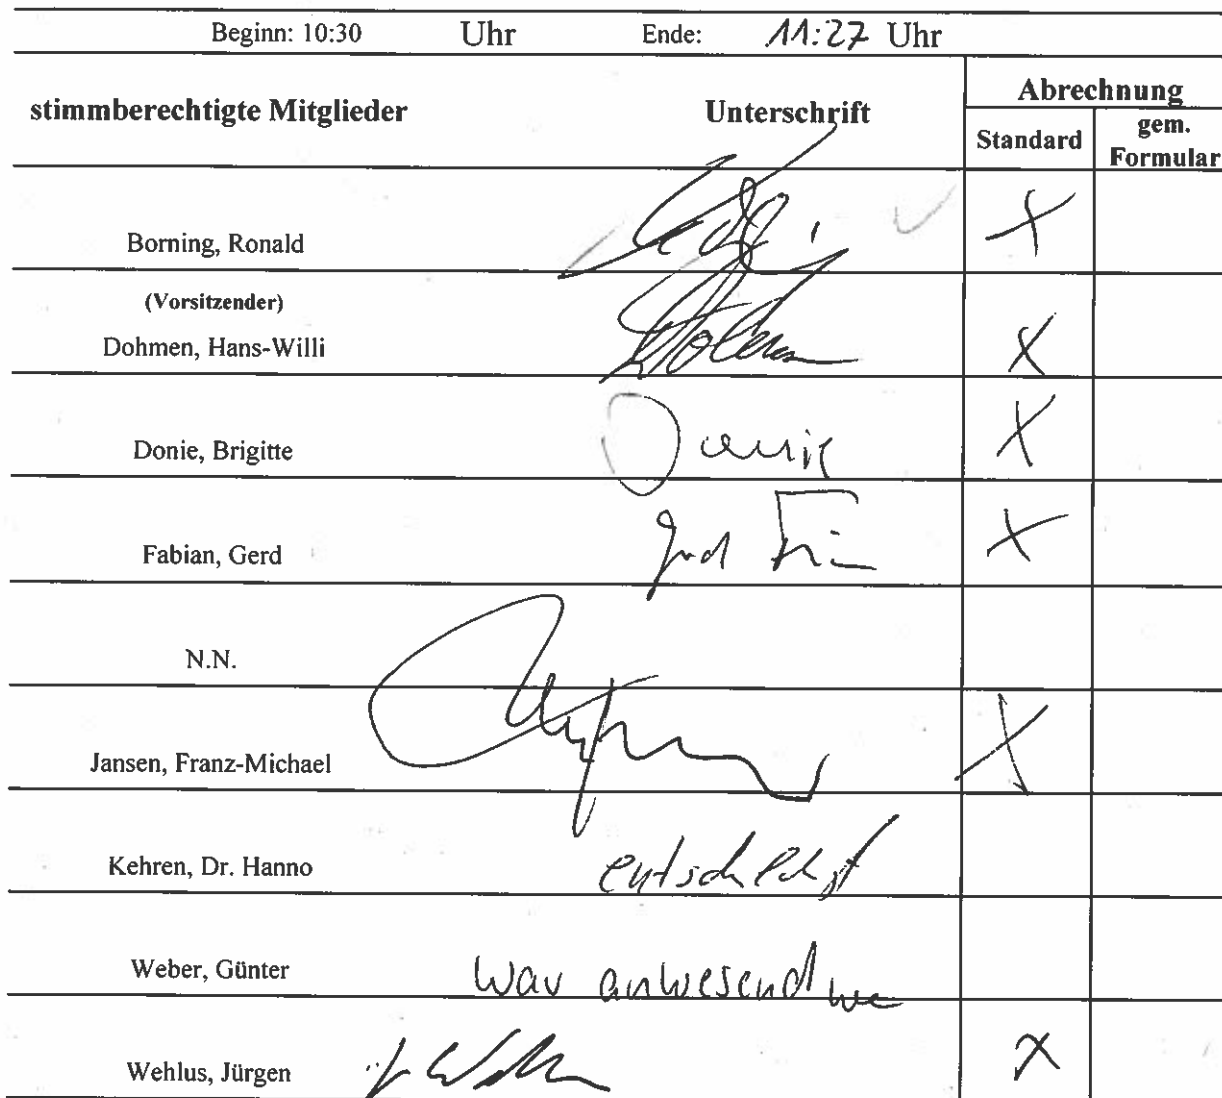 Beginn: 10:30 Uhr Ende: 11:27 Uhr
stimmberechtigte Mitglieder Unterschrift Abrechnung
Standard gem. Formular
Borning, Ronald X
(Vorsitzender)
Dohmen, Hans-Willi X
Donie, Brigitte Donie X
Fabian, Gerd Gerd X
N.N.
Jansen, Franz-Michael X
Kehren, Dr. Hanno entschuldigt
Weber, Günter war anwesend we
Wehlus, Jürgen X